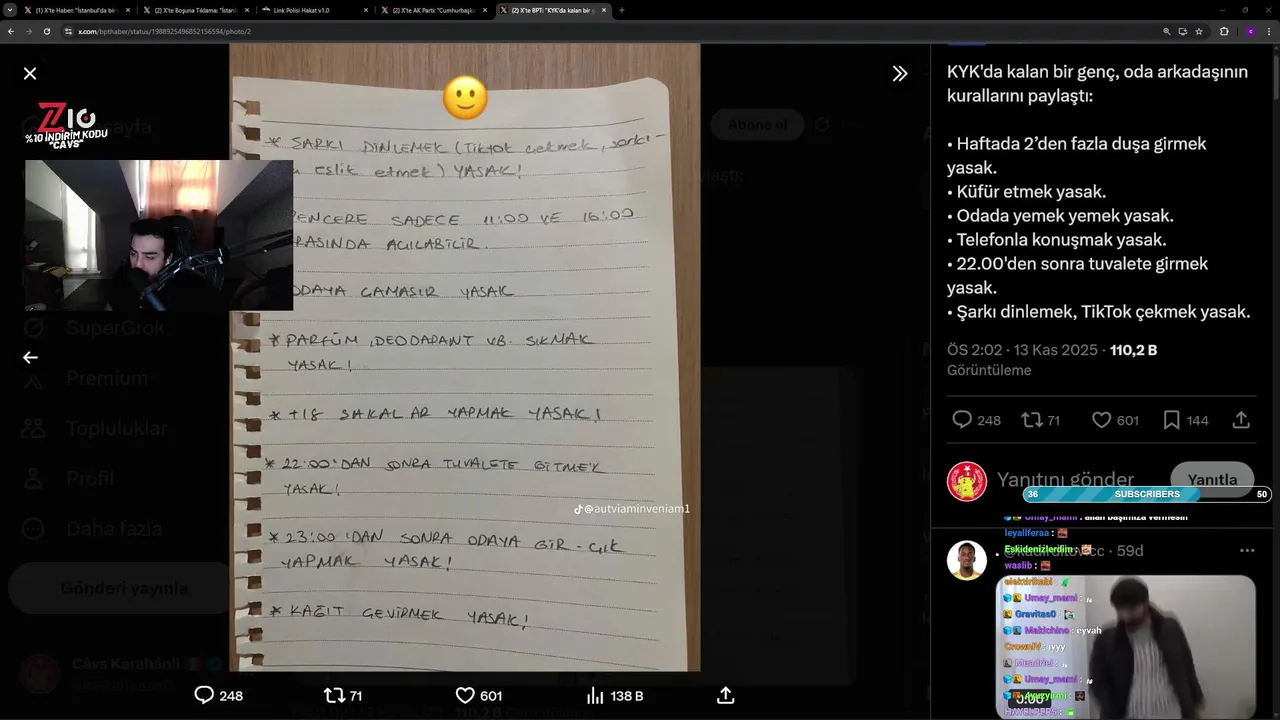 (1) X'te Haber: "İstanbul'da bir
(2) X'te Boşuna Tıklama: "İstanl
Link Polisi Hakat v1.0
(2) X'te AK Parti: "Cumhurbaşka
(2) X'te BPT: "KYK'da kalan bir g
x.com/bpthaber/status/1988925496852156594/photo/2
Z10
%10 İNDİRİM KODU
"CAVS"
Abone ol
* ŞARKI DİNLEMEK (Tiktok çekmek, şarkı-
eşlik etmek) YASAK!
PENCERE SADECE 11:00 VE 16:00
RASINDA AÇILABİLİR.
ODAYA ÇAMAŞIR YASAK
* PARFÜM, DEODARANT VB. SIKMAK
YASAK!
* +18 ŞAKALAR YAPMAK YASAK!
* 22:00'DAN SONRA TUVALETE GİTMEK
YASAK!
@autviaminveniam1
* 23:00'DAN SONRA ODAYA GİR-ÇIK
YAPMAK YASAK!
* KAĞIT ÇEVİRMEK YASAK!
SuperGrok
Premium
Topluluklar
Profil
Daha fazla
Gönderi yayınla
Câvs Karahânli
248
71
601
138 B
KYK'da kalan bir genç, oda arkadaşının
kurallarını paylaştı:
• Haftada 2’den fazla duşa girmek
yasak.
• Küfür etmek yasak.
• Odada yemek yemek yasak.
• Telefonla konuşmak yasak.
• 22.00'den sonra tuvalete girmek
yasak.
• Şarkı dinlemek, TikTok çekmek yasak.
ÖS 2:02 · 13 Kas 2025 · 110,2 B
Görüntüleme
248
71
601
144
Yanıtını gönder
Yanıtla
36 SUBSCRIBERS 50
Umay_mami : allah başımıza vermesin
leyaliferaa :
Eskidenizlerdim :
· 59d
waslib :
elektirikabi
Umay_mami :
Gravitas0 :
Makichino : eyvah
CrownIV : ıyyy
Muadriel :
Umay_mami :
Ayuzyirmi :
0:00